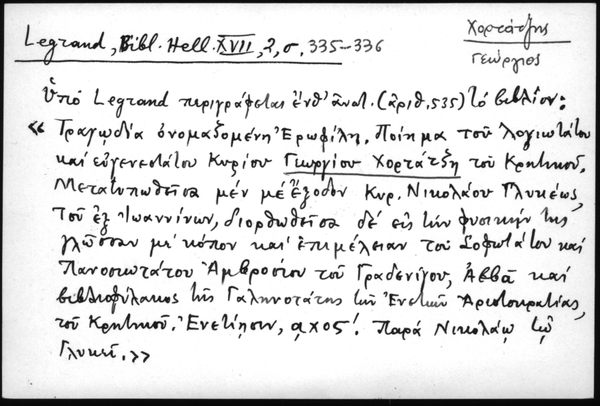 Legrand, Bibl. Hell. XVII, 2, σ. 335-336
Χορτάτζης
Γεώργιος
Ὑπό Legrand περιγράφεται ἐνθ' ἀνωτ. (ἀριθ. 535) τό βιβλίον:
« Τραγωδία ὀνομαζομένη Ἐρωφίλη. Ποίημα τοῦ λογιωτάτου
καί εὐγενεστάτου Κυρίου Γεωργίου Χορτάτζη τοῦ Κρητικοῦ.
Μετατυπωθεῖσα μέν μέ ἔξοδον Κυρ. Νικολάου Γλυκέως,
τοῦ ἐξ Ἰωαννίνων, διορθωθεῖσα δέ εἰς τήν φυσικήν της
γλῶσσαν μέ κόπον καί ἐπιμέλειαν τοῦ Σοφωτάτου καί
Πανοσιωτάτου Ἀμβροσίου τοῦ Γραδενίγου, Ἀββᾶ καί
βιβλιοφύλακος τῆς Γαληνοτάτης τῶν Ἐνετῶν Ἀριστοκρατίας,
τοῦ Κρητικοῦ. Ἐνετίῃσιν, αχος'. Παρά Νικολάῳ τῷ
Γλυκεῖ. »